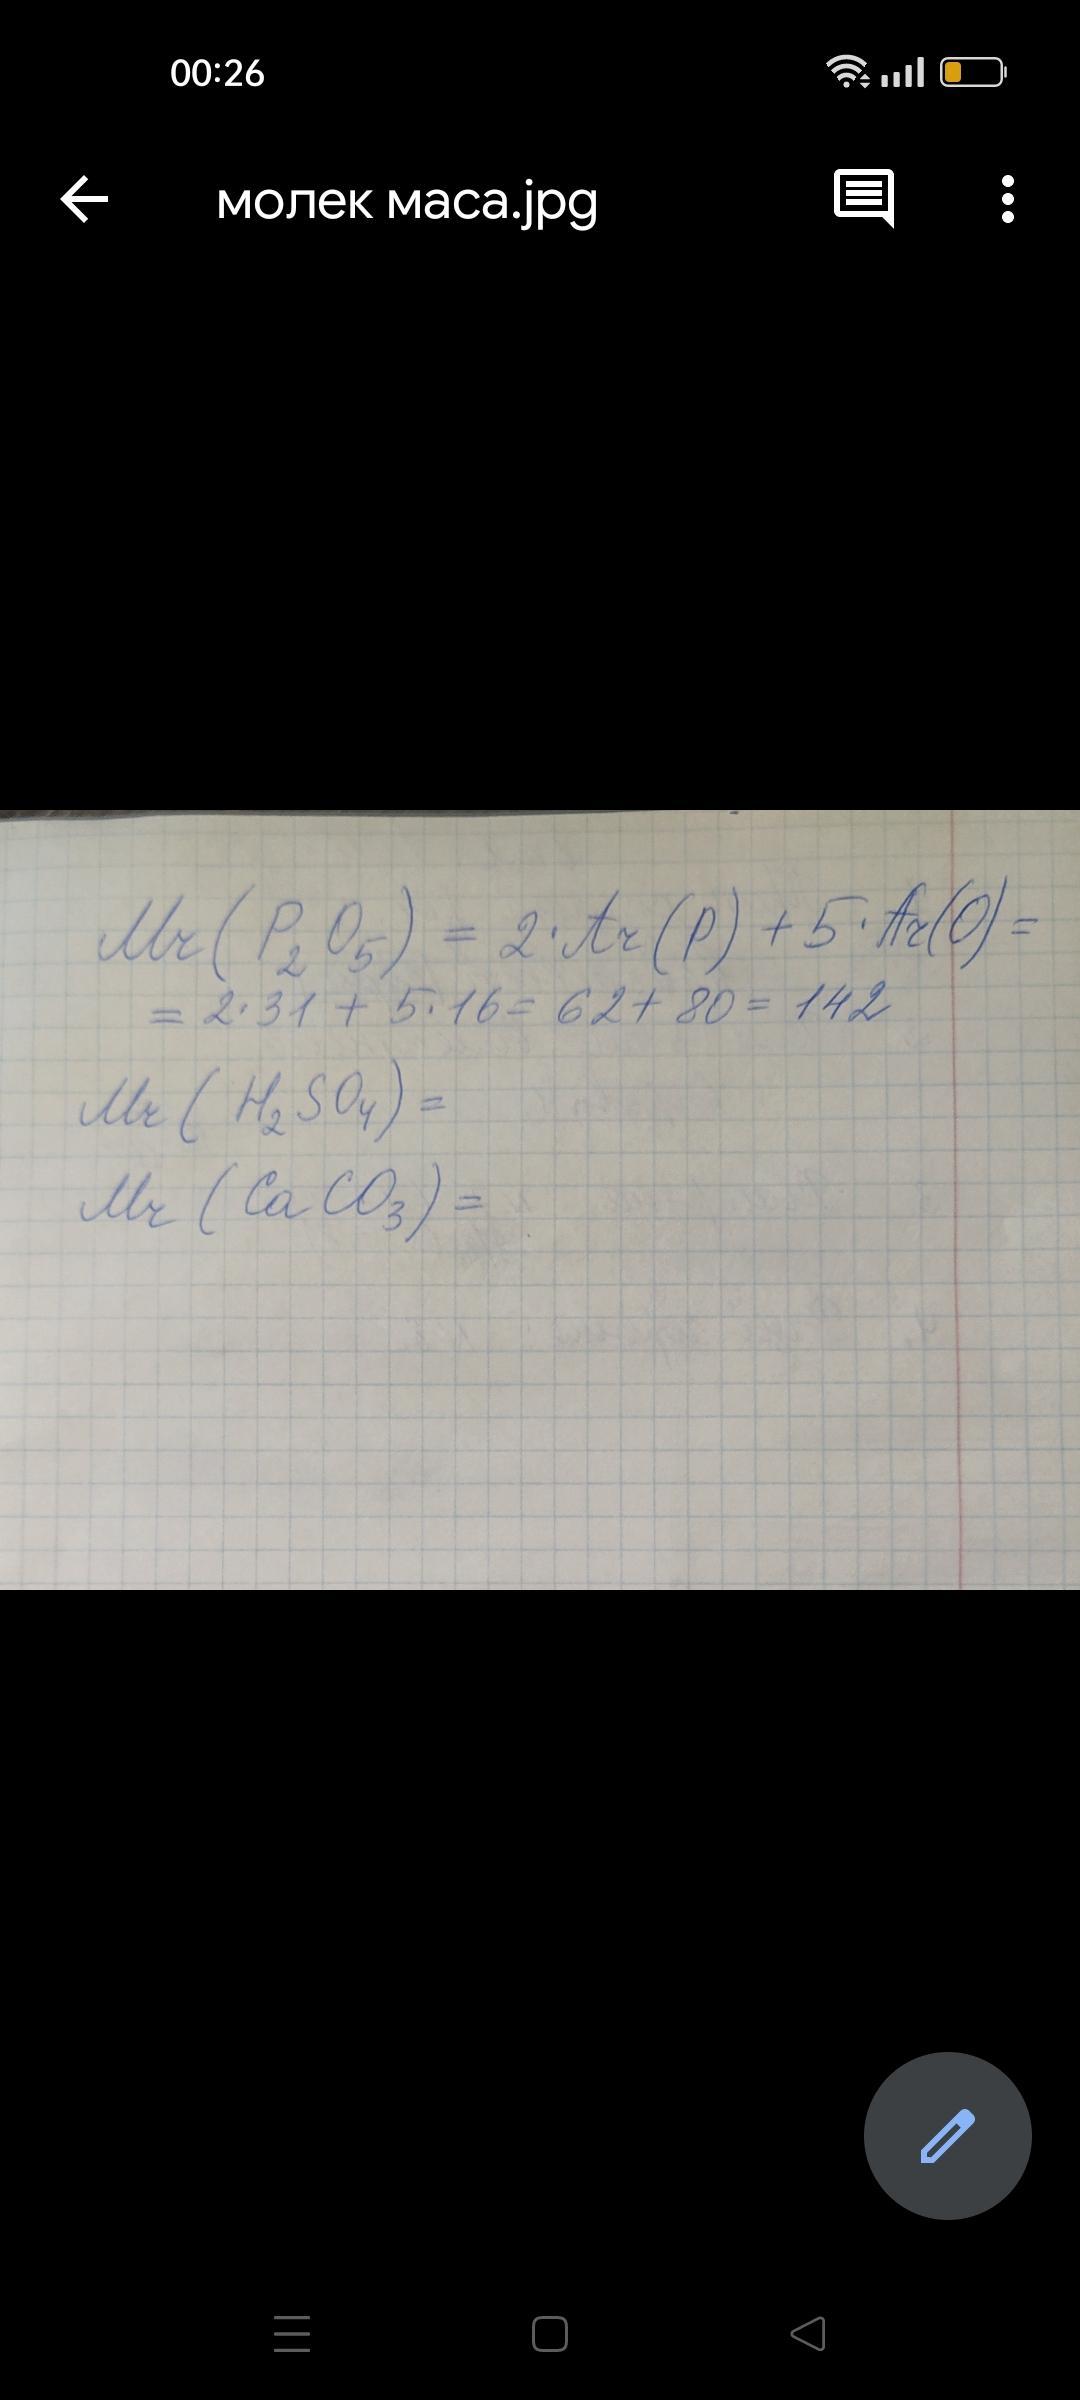 00:26
молек маса.jpg
Mr(P₂O₅) = 2·Ar(P) + 5·Ar(O) =
= 2·31 + 5·16 = 62 + 80 = 142
Mr(H₂SO₄) =
Mr(CaCO₃) =